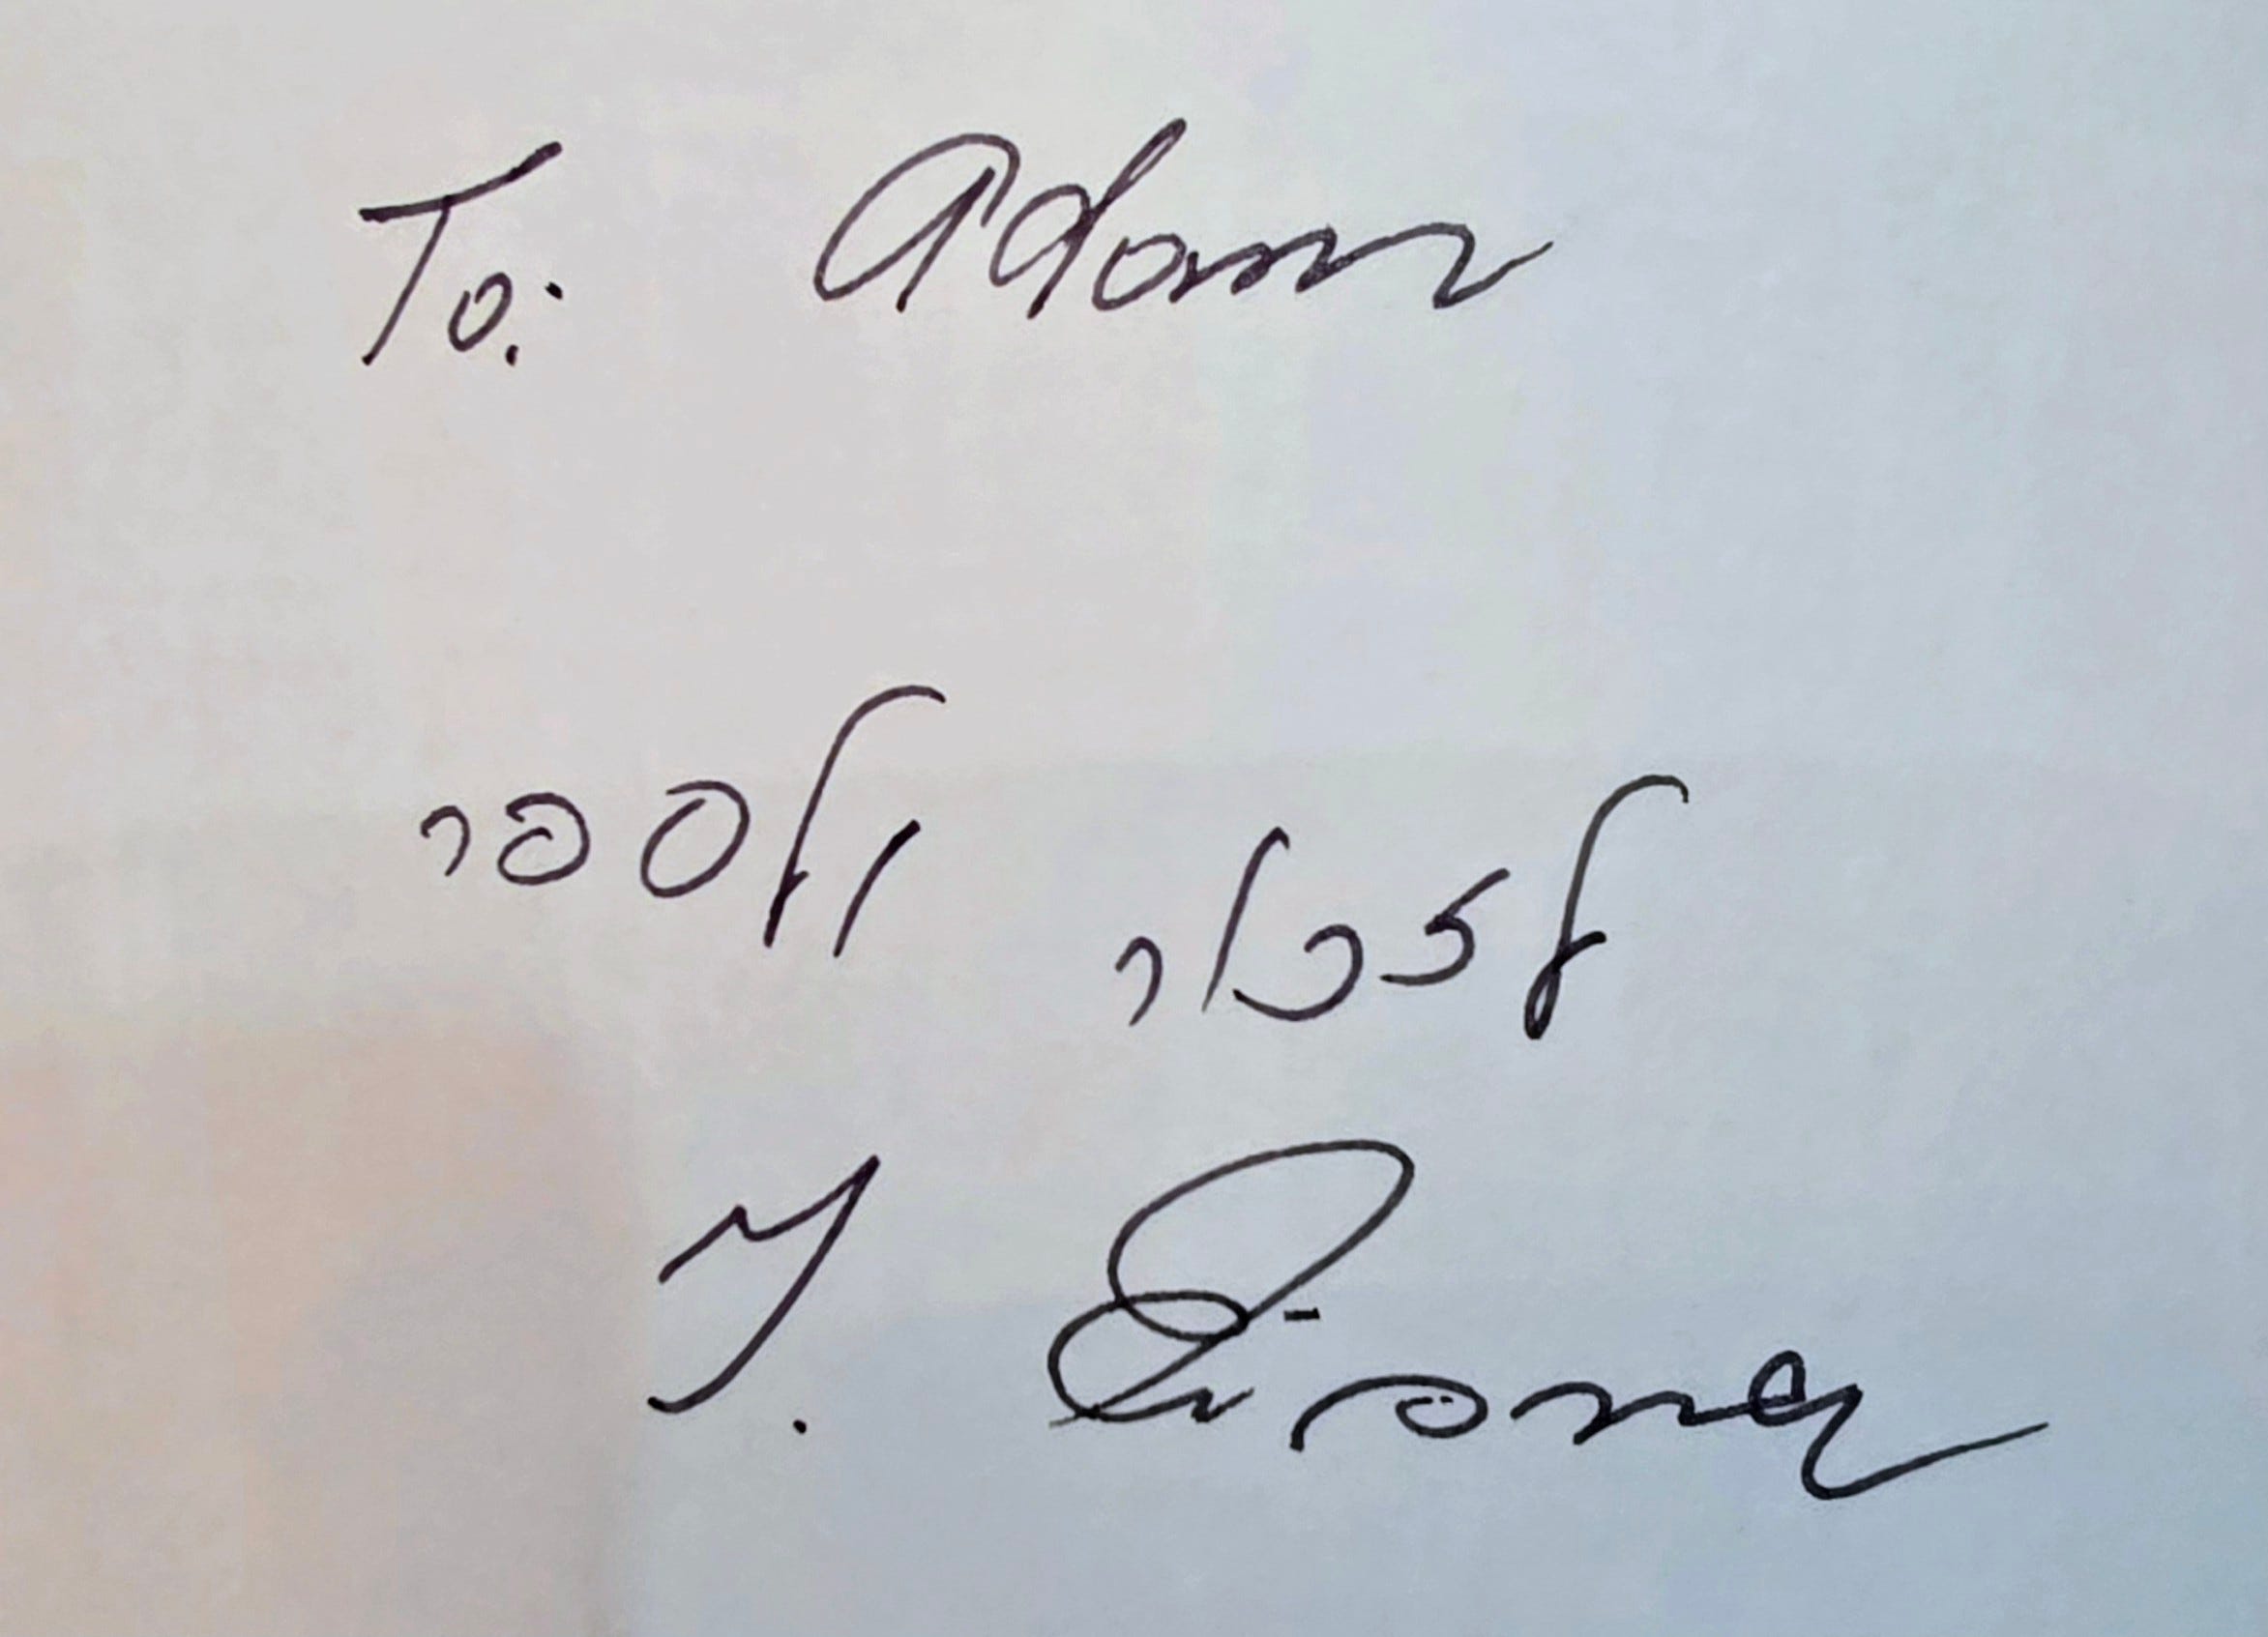 To: Adam
לזכור ולספר
Y. Eisner